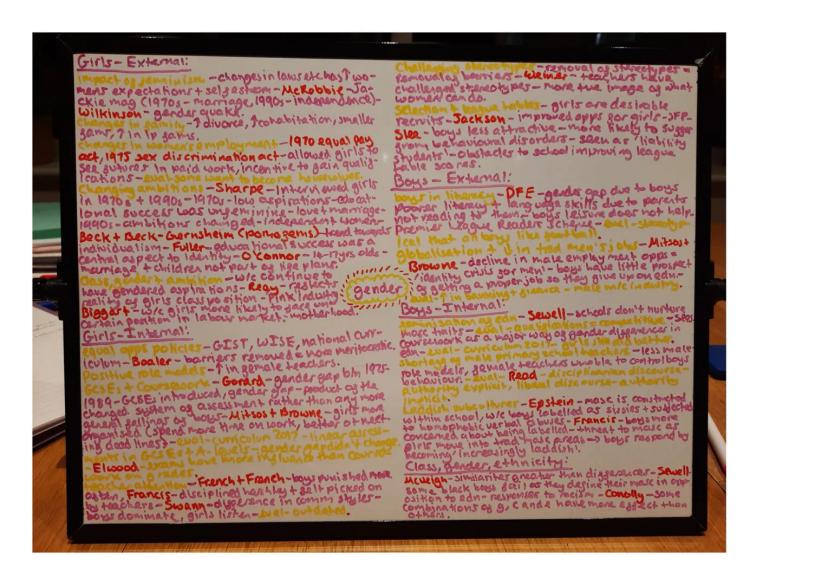 Girls - External:
impact of feminism - changes in laws etc has ↑ wo-
mens expectations + self esteem - McRobbie - Ja-
ckie mag (1970s - marriage, 1990s - independence) -
Wilkinson - gender quake.
changes in family - ↑ divorce, ↑ cohabitation, smaller
fams, ↑ in lp fams.
changes in women's employment - 1970 equal pay
act, 1975 sex discrimination act - allowed girls to
see future in paid work, incentive to gain qualif-
ications - eval-some want to become housewives.
Changing ambitions - Sharpe - interviewed girls
in 1970s + 1990s - 1970s - low aspirations - educat-
ional success was unfeminine - love + marriage -
1990s - ambitions changed - independent women -
Beck + Beck-Gernsheim - trend towards
individualism - Fuller - educational success was a
central aspect to identity - O'Connor - 14-17yrs olds -
marriage + children not part of life plans.
Class, gender + ambition - w/c continue to
have gendered aspirations - Reay - reflects
reality of girls class position - 'Pink' industry
Biggart - w/c girls more likely to face un-
certain position in labour market. motherhood
Girls - Internal:
equal opps policies - GIST, WISE, national curr-
iculum - Boaler - barriers removed + more meritocratic.
Positive role models - ↑ in female teachers.
GCSEs + Coursework - Gorard - gender gap b/n 1975-
1989 - GCSEs introduced, gender gap - product of the
changed system of assessment rather than any more
general failings of boys - Mitsos + Browne - girls more
organised (spend more time on work, better at meet-
ing deadlines) - eval - curriculum 2017 - linear assess-
ments in GCSEs + A-levels - gender gap didn't change.
- Elwood - exams have more influence than course
work on grades.
teacher attention - French + French - boys punished more
often, Francis - disciplined harshly + felt picked on
by teachers - Swann - difference in comm styles -
boys dominate, girls listen - eval-outdated.
gender
Challenging stereotypes - removal of stereotypes =
removal of barriers - Weiner - teachers have
challenged stereotypes - more true image of what
women can do.
Selection + league tables - girls are desirable
recruits - Jackson - improved opps for girls - SFP -
Slee - boys less attractive - more likely to suffer
from behavioural disorders - seen as 'liability
students' - obstacles to school improving league
table scores.
Boys - External:
boys in literacy - DFE - gender gap due to boys
poorer literacy + language skills due to parents
not reading to them - boys leisure does not help -
Premier League Reader Scheme - eval - stereotyp-
ical that all boys like football.
globalisation + ↓ in trad men's jobs - Mitsos +
Browne - decline in male employment opps =
'identity crisis for men' - boys have little prospect
of getting a proper job so they give up on edn -
eval - ↑ in + - male m/c industry.
Boys - Internal:
feminisation of edn - Sewell - schools don't nurture
masc traits - eval - qualifications = competitive - sees
coursework as a major way of gender differences in
edn - eval - curriculum 2017 - girls still did better.
shortage of male primary school teachers - less male
role models, female teachers unable to control boys
behaviour. - eval - Read - disciplinarian discourse -
authority explicit, liberal discourse - authority
implicit.
Laddish subcultures - Epstein - masc is constructed
within school, w/c boys labelled as sissies + subjected
to homophobic verbal abuse - Francis - boys more
concerned about being labelled - threat to masc as
girls move into trad 'masc areas' → boys respond by
becoming increasingly laddish.
Class, gender, ethnicity:
McVeigh - similarities greater than differences - Sewell -
some black boys fail as they define their masc in opp-
osition to edn - responses to racism - Conolly - some
combinations of g, c and e have more effect than
others.